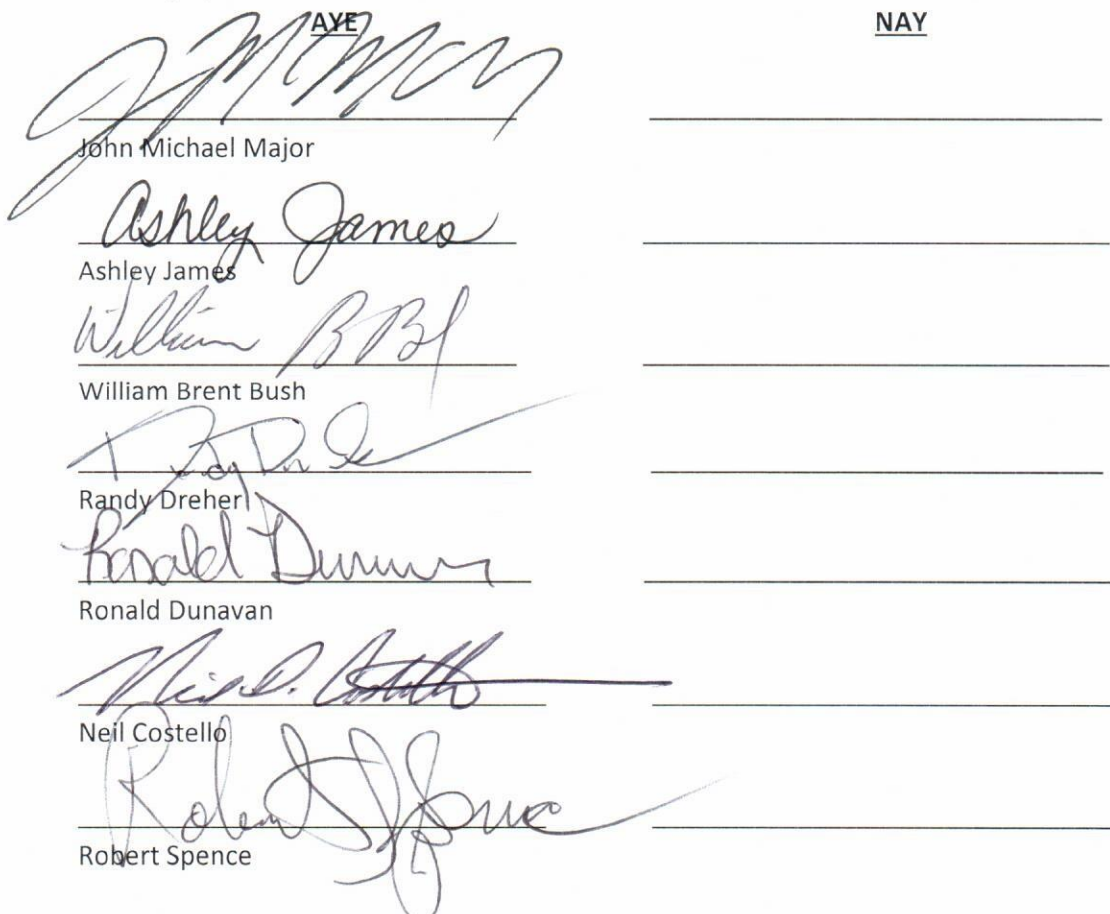 AYE NAY
John Michael Major
Ashley James
Ashley James
William
William Brent Bush
Randy Dreher
Ronald
Ronald Dunavan
Neil D. Costello
Neil Costello
Robert Spence
Robert Spence